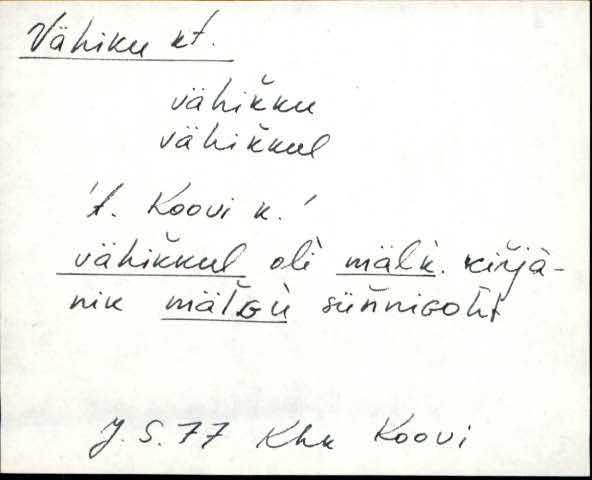 Vähiku kt.
vähik̆ku
vähik̆kul
't. Koovi k.'
vähik̆kul oli mäl̆k. kir̆jä-
nik mäl̆Gu sün̆niGoht
J. S. 77 Khk Koovi